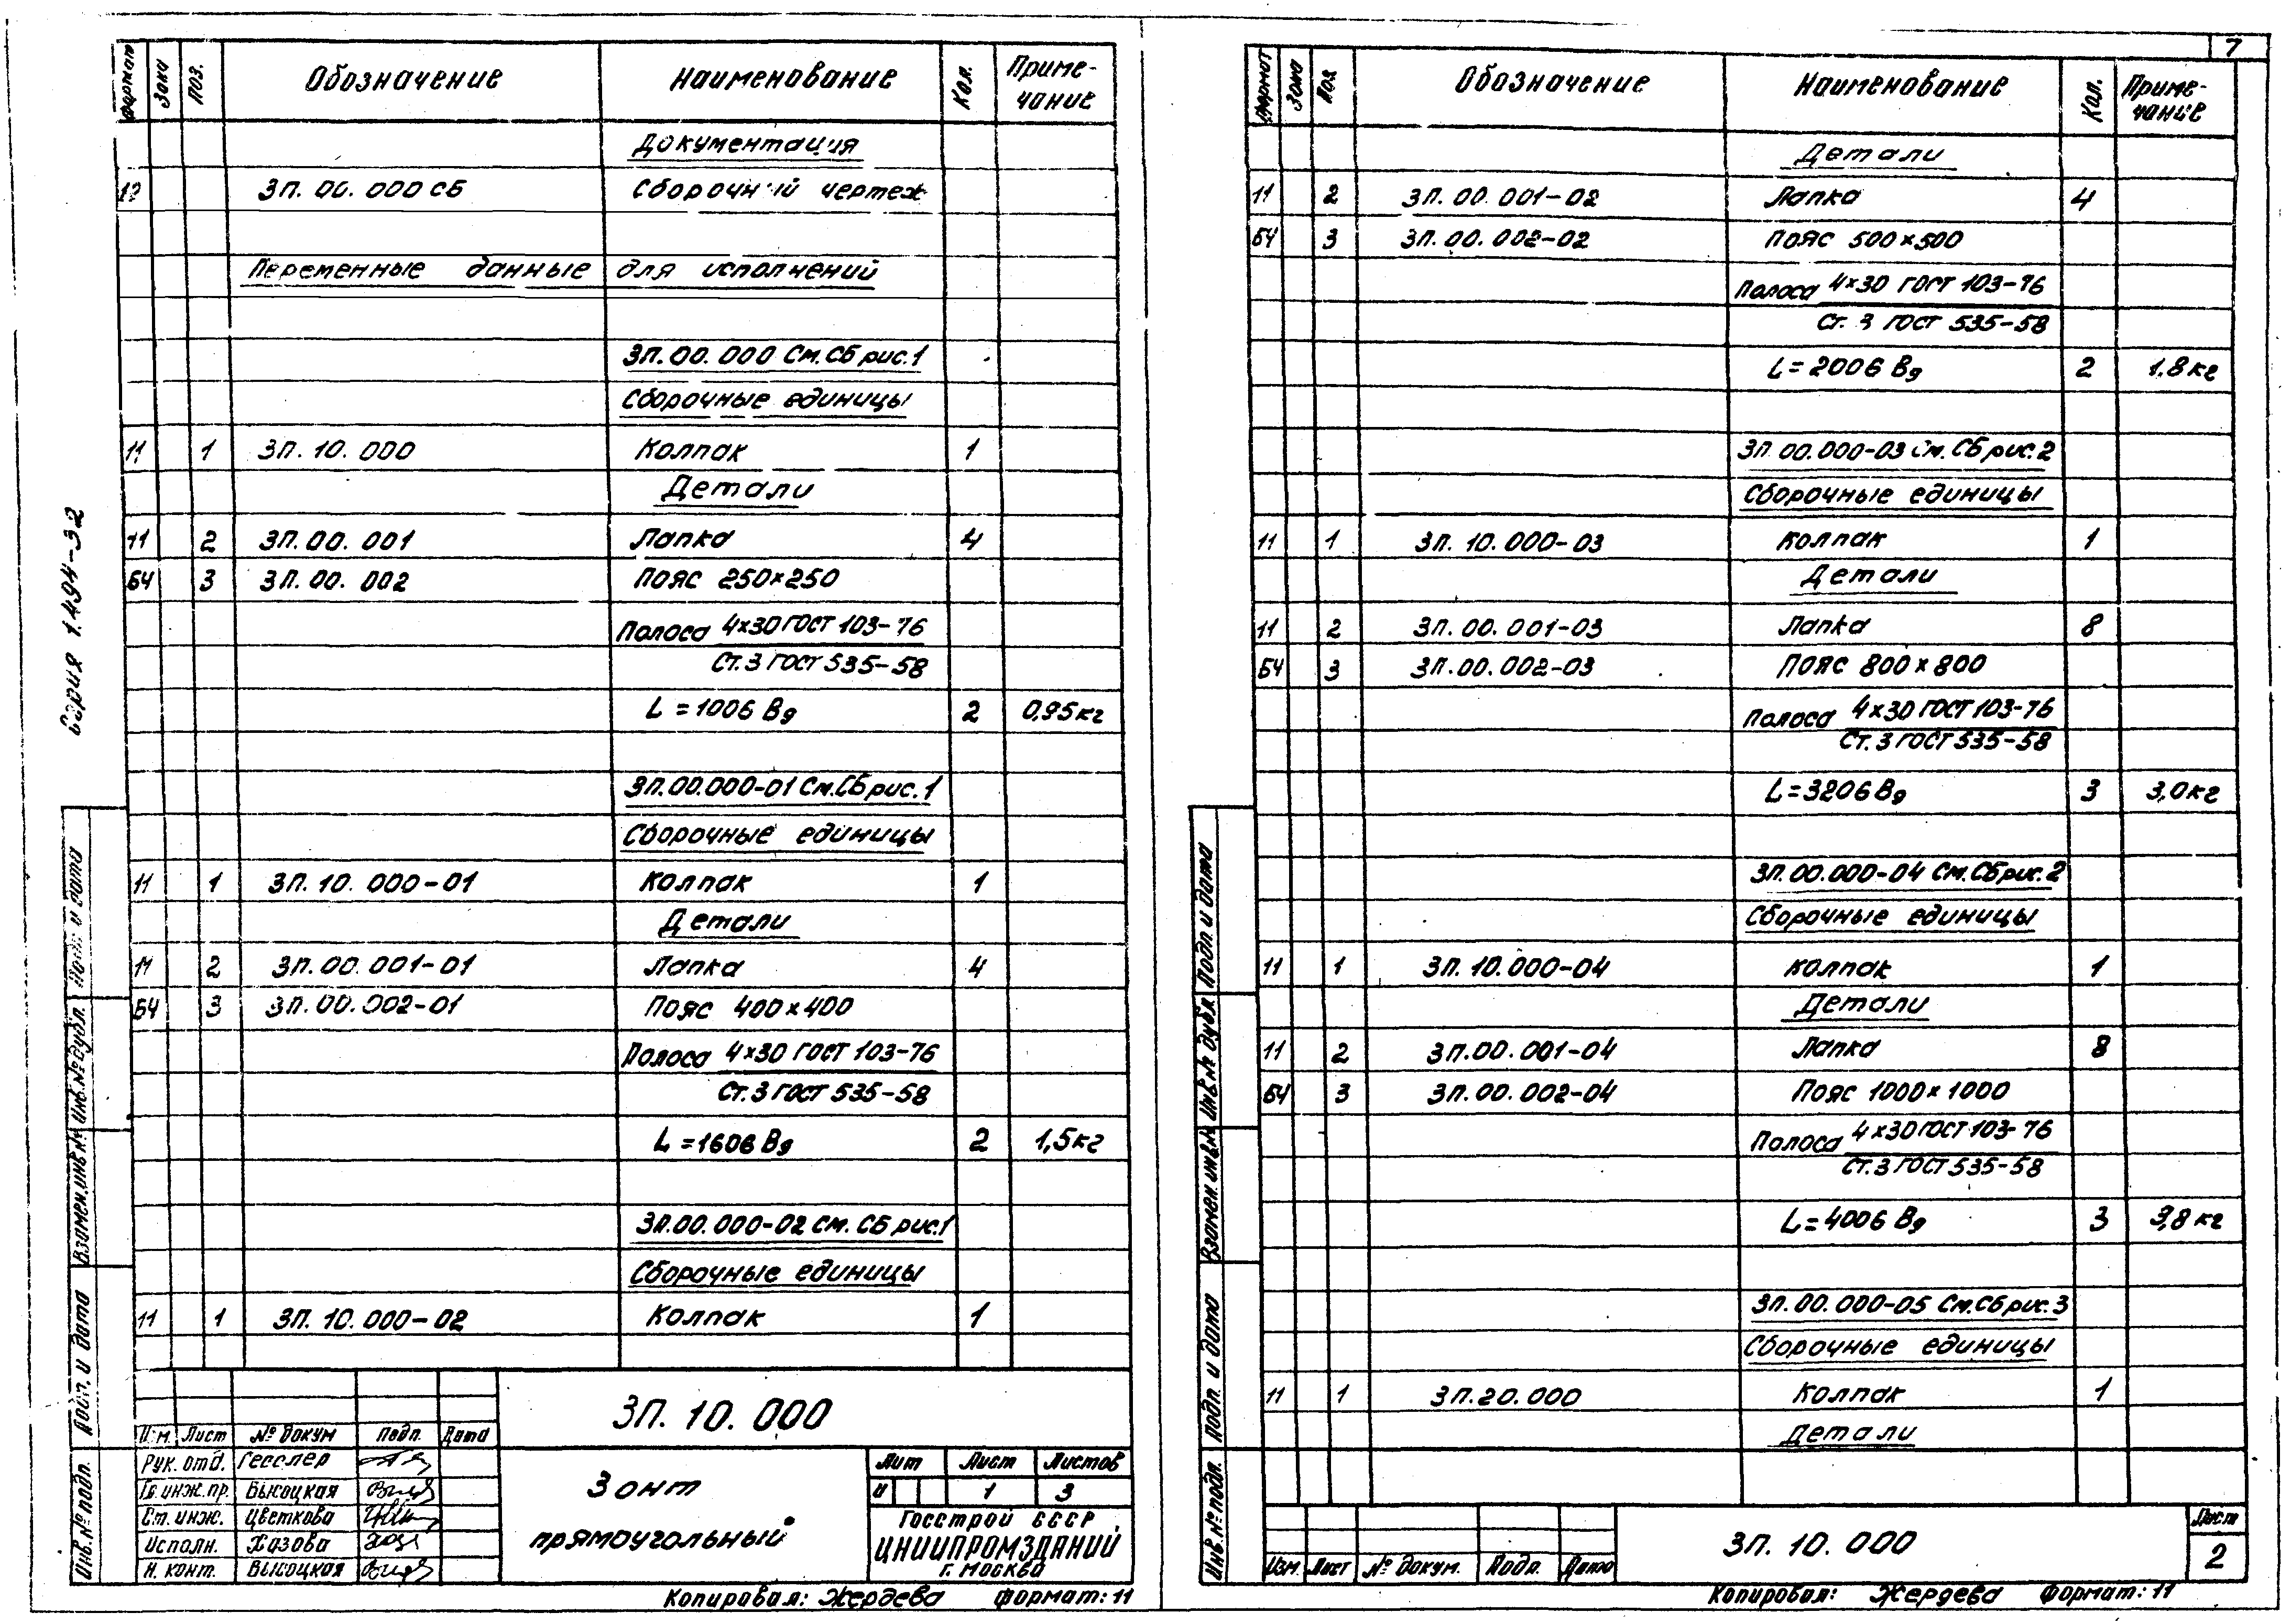 Формат Зона Поз. Обозначение Наименование Кол. Приме-
чание
Документация
12 ЗП. 00. 000 СБ Сборочный чертеж
Переменные данные для исполнений
ЗП. 00. 000 См. СБ рис. 1
Сборочные единицы
11 1 ЗП. 10. 000 Колпак 1
Детали
11 2 ЗП. 00. 001 Лапка 4
БЧ 3 ЗП. 00. 002 Пояс 250×250
Полоса 4×30 ГОСТ 103-76
Ст. 3 ГОСТ 535-58
L = 1006 Вд 2 0,95 кг
ЗП. 00. 000-01 См. СБ рис. 1
Сборочные единицы
11 1 ЗП. 10. 000-01 Колпак 1
Детали
11 2 ЗП. 00. 001-01 Лапка 4
БЧ 3 ЗП. 00. 002-01 Пояс 400×400
Полоса 4×30 ГОСТ 103-76
Ст. 3 ГОСТ 535-58
L = 1606 Вд 2 1,5 кг
ЗП. 00. 000-02 См. СБ рис. 1
Сборочные единицы
11 1 ЗП. 10. 000-02 Колпак 1
Серия 1.494-32
Подп. и дата
Инв. № дубл.
Взамен. инв. №
Подп. и дата
Инв. № подп.
ЗП. 10. 000
Изм. Лист № докум Подп. Дата
Рук. отд. Гесслер
Гл. инж. пр. Высоцкая
Ст. инж. Цветкова
Исполн. Хазова
Н. конт. Высоцкая
Зонт
прямоугольный
Лит Лист Листов
И 1 3
Госстрой СССР
ЦНИИПРОМЗДАНИЙ
г. Москва
Копировал: Жердева Формат: 11
7
Формат Зона Поз Обозначение Наименование Кол. Приме-
чание
Детали
11 2 ЗП. 00. 001-02 Лапка 4
БЧ 3 ЗП. 00. 002-02 Пояс 500×500
Полоса 4×30 ГОСТ 103-76
Ст. 3 ГОСТ 535-58
L = 2006 Вд 2 1,8 кг
ЗП. 00. 000-03 См. СБ рис. 2
Сборочные единицы
11 1 ЗП. 10. 000-03 Колпак 1
Детали
11 2 ЗП. 00. 001-03 Лапка 8
БЧ 3 ЗП. 00. 002-03 Пояс 800×800
Полоса 4×30 ГОСТ 103-76
Ст. 3 ГОСТ 535-58
L = 3206 Вд 3 3,0 кг
ЗП. 00. 000-04 См. СБ рис. 2
Сборочные единицы
11 1 ЗП. 10. 000-04 Колпак 1
Детали
11 2 ЗП. 00. 001-04 Лапка 8
БЧ 3 ЗП. 00. 002-04 Пояс 1000×1000
Полоса 4×30 ГОСТ 103-76
Ст. 3 ГОСТ 535-58
L = 4006 Вд 3 3,8 кг
ЗП. 00. 000-05 См. СБ рис. 3
Сборочные единицы
11 1 ЗП. 20. 000 Колпак 1
Детали
Подп. и дата
Инв. № дубл.
Взамен. инв. №
Подп. и дата
Инв. № подп.
Изм. Лист № докум. Подп. Дата
ЗП. 10. 000
Лист
2
Копировал: Жердева Формат: 11